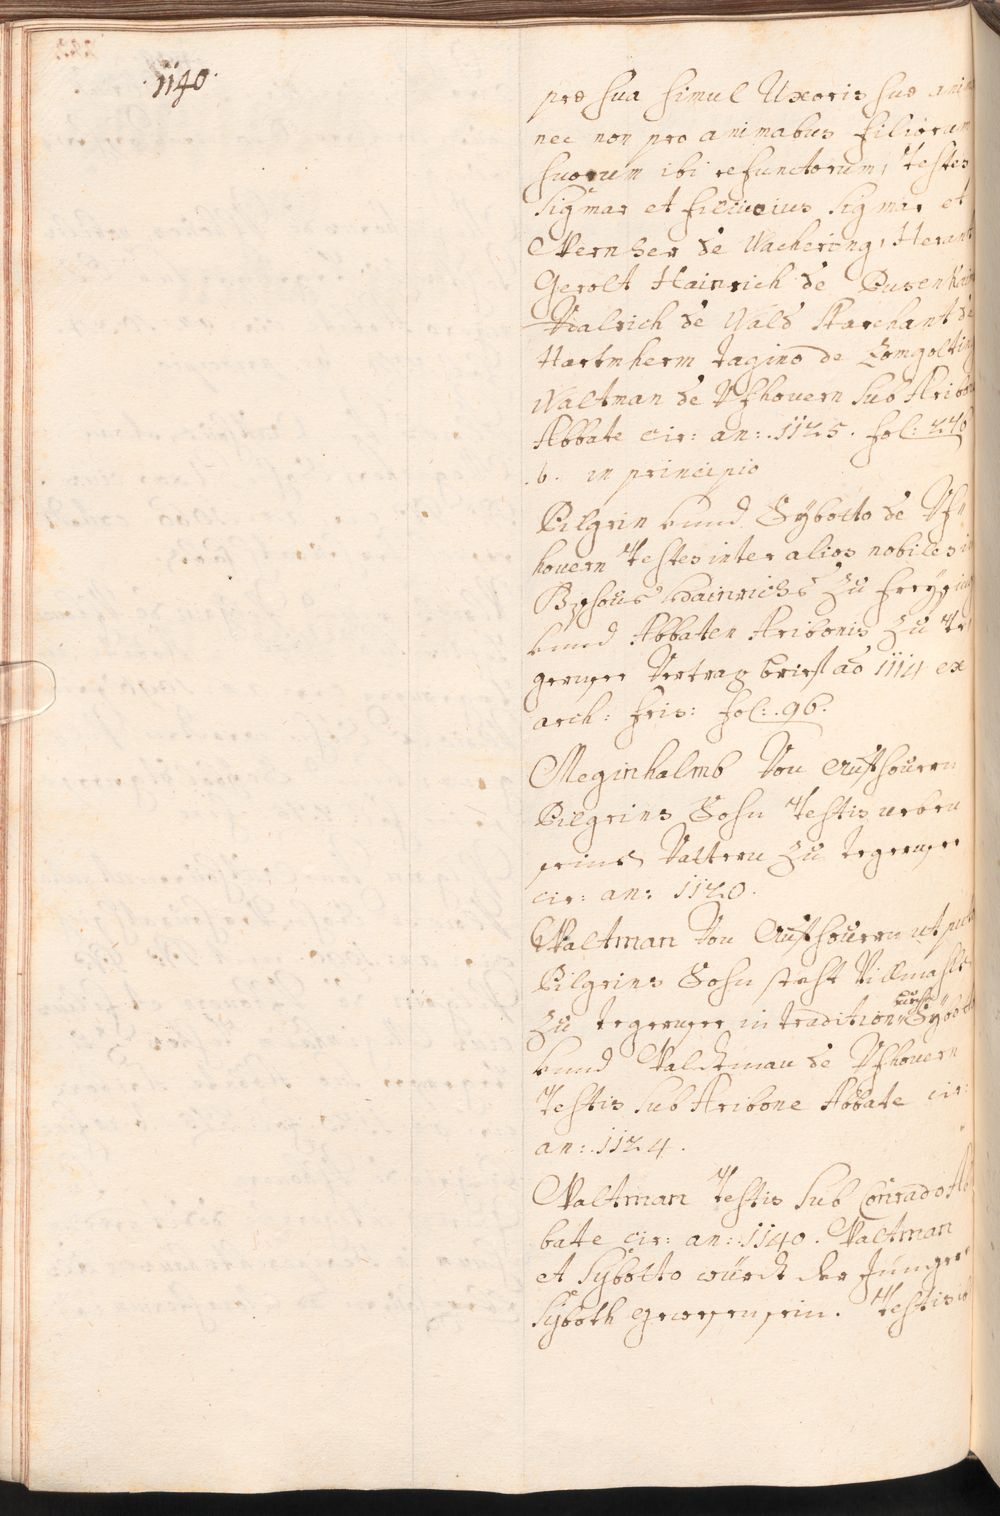 1140.
pro sua simul Uxoris suæ anim
nec non pro animabus filiorum
suorum ibi defunctorum, Testes
Sigmar et filius eius Sigmar et
Wernher de Wachering, Herant
Gerolt Hainrich de Pusenh
Vdalrich de Wald Starchant de
Hartmherm tagino de Zomgolting
Waltman de Vfhouern sub Aribon
Abbate cir: an: 1125. fol: 276
.b. in principio
Pilgrin vnnd Sÿbotto de Vf-
houern Testes inter alios nobiles in
Bischous Hainrichs zu Freÿsing
vnnd Abbaten Aribonis zu Te
gernsee Vertrag brieff aõ 1114 ex
arch: Fris: fol: 96.
Meginhalmb Von Aufhouern
Pilgrins Sohn Testis neben
seine Vattern zu tegernsee
cir: an: 1120.
Waltman Von Aufhouern ut
Pilgrins Sohn steht Villmahls
zu tegernsee in tradition Sÿbot
vnnd Waldtman de Vfhouern
Testis sub Aribone Abbate cir:
an: 1124.
Waltman Testis sub Conrado Ab
bate cir: an: 1140. Waltman
et Sÿbotto würdt der Junger
Sÿboth gewesen sein. Testis